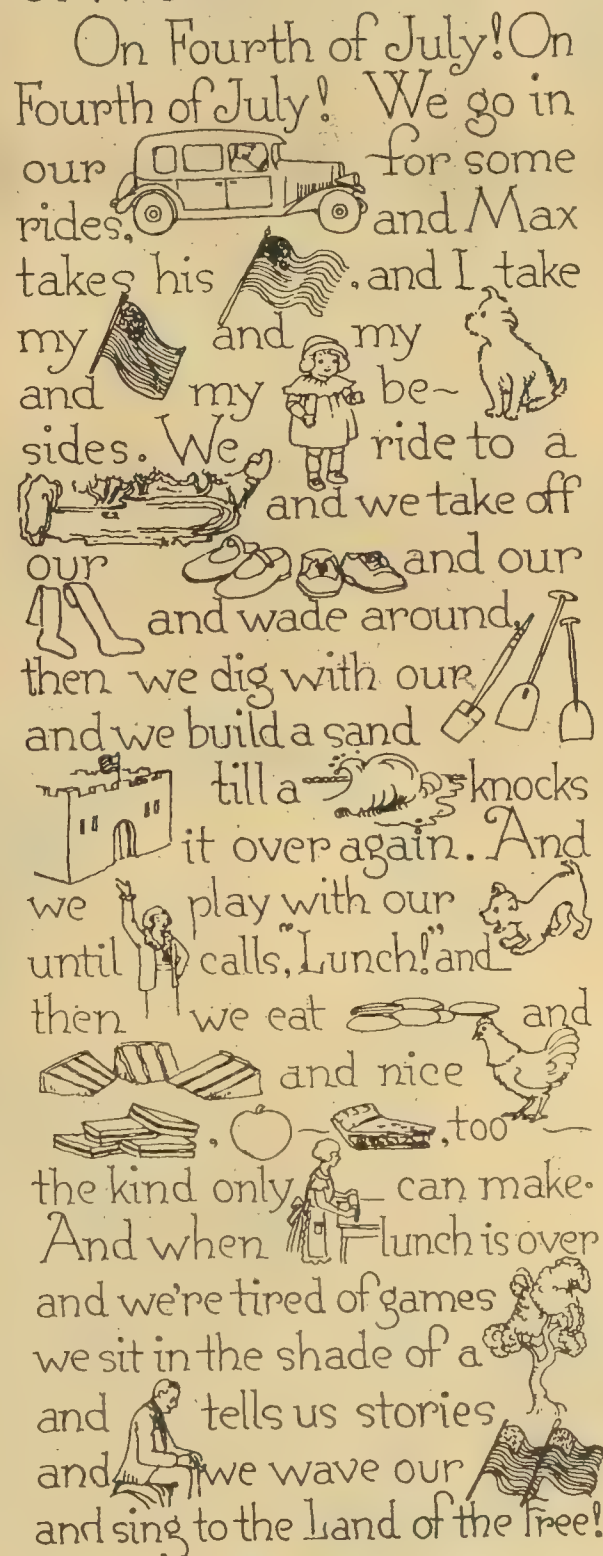 On Fourth of July! On
Fourth of July! We go in
our for some
rides, and Max
takes his , and I take
my and my
and my be-
sides. We ride to a
and we take off
our and our
and wade around,
then we dig with our
and we build a sand
till a knocks
it over again. And
we play with our
until calls, "Lunch!" and
then we eat and
and nice
, - , too
the kind only can make.
And when lunch is over
and we're tired of games
we sit in the shade of a
and tells us stories
and we wave our
and sing to the Land of the Free!